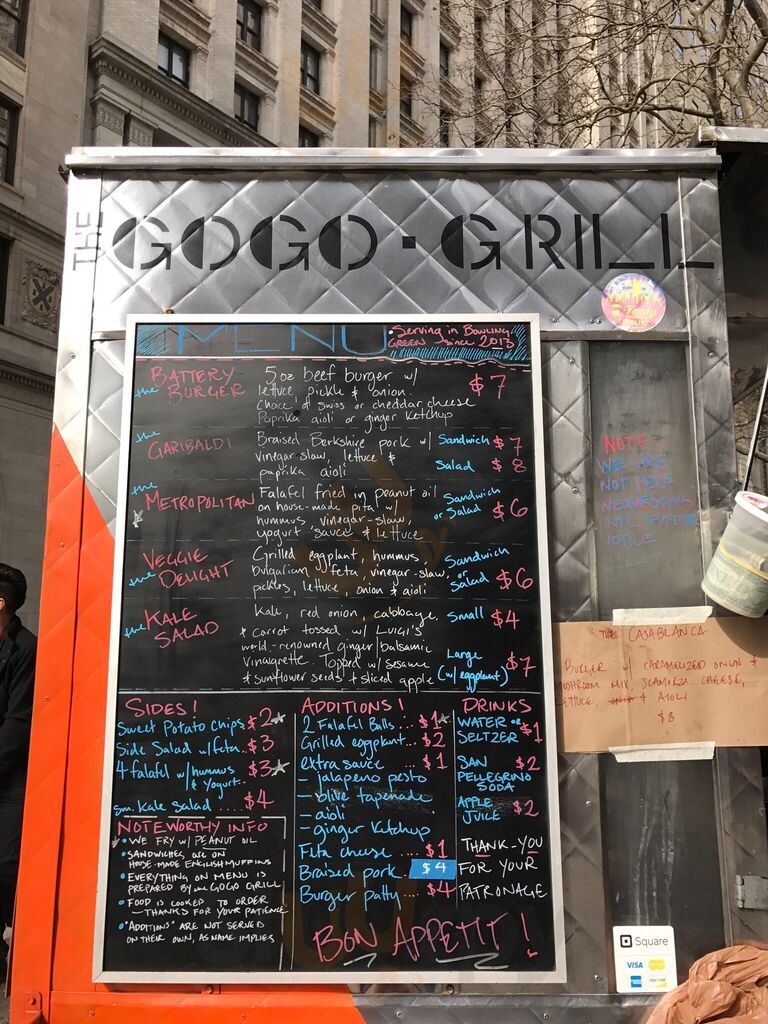 THE GOGO·GRILL
MENU
Serving in Bowling
Green since 2013
the BATTERY BURGER
5oz beef burger w/
lettuce pickle & onion.
Choice of swiss or cheddar cheese
Paprika aioli or ginger ketchup
$7
the GARIBALDI
Braised Berkshire pork w/
vinegar slaw, lettuce &
paprika aioli
Sandwich $7
Salad $8
the METROPOLITAN
Falafel fried in peanut oil
on house-made pita w/
hummus, vinegar-slaw,
yogurt sauce & lettuce
Sandwich or Salad $6
the VEGGIE DELIGHT
Grilled eggplant, hummus,
bulgarian feta, vinegar-slaw,
pickles, lettuce, onion & aioli
Sandwich or Salad $6
the KALE SALAD
Kale, red onion, cabbage,
& carrot tossed w/ LUIGI's
world-renowned ginger/balsamic
vinaigrette. Topped w/ sesame
& sunflower seeds & sliced apple
Small $4
Large (w/ eggplant) $7
SIDES!
Sweet Potato Chips $2
Side Salad w/feta.. $3
4 falafel w/hummus & Yogurt. $3
sm. Kale Salad .... $4
NOTEWORTHY INFO
• WE FRY w/ PEANUT OIL
• SANDWICHES ARE ON
HOUSE-MADE ENGLISH MUFFINS
• EVERYTHING ON MENU IS
PREPARED BY the GOGO GRILL
• FOOD IS COOKED TO ORDER
— THANKS FOR YOUR PATIENCE
• "ADDITIONS" ARE NOT SERVED
ON THEIR OWN, AS NAME IMPLIES
ADDITIONS!
2 Falafel Balls ... $1
Grilled eggplant... $2
extra sauce ... $1
- jalapeno pesto
- olive tapenade
- aioli
- ginger ketchup
Feta cheese .... $1
Braised pork.. $4
Burger patty ... $4
DRINKS
WATER or
SELTZER $1
SAN
PELLEGRINO
SODA $2
APPLE
JUICE $2
THANK-YOU
FOR YOUR
PATRONAGE
BON APPETIT!
NOTE:
WE ARE
NOT HERE
WEDNESDAYS
UNTIL FURTHER
NOTICE
THE CASABLANCA
BURGER w/ CARAMELIZED ONION &
MUSHROOM MIX, SCAMORZA CHEESE,
LETTUCE, & AIOLI
$8
Square
VISA
DISCOVER